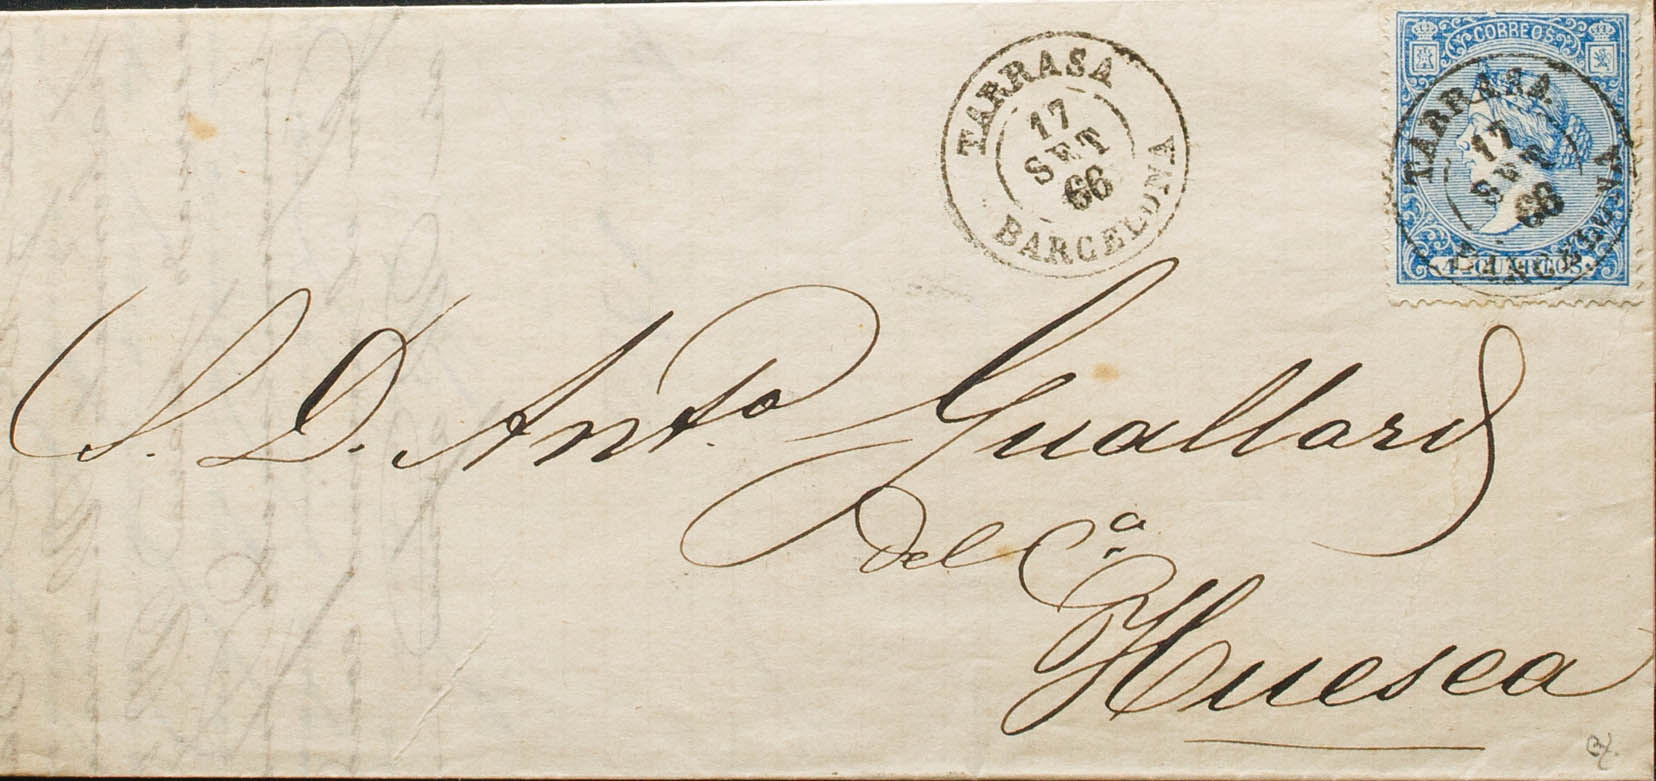 TARRASA
17
SET
66
BARCELONA
CORREOS
TARRASA
17
SET
66
BARCELONA
CUARTOS
S. D. Ant.º Guallard
del C.ª
Huesca